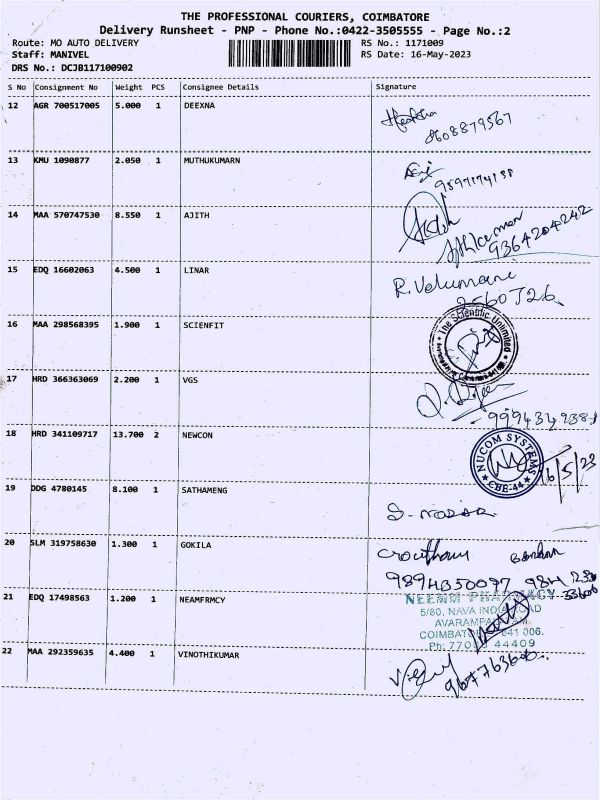 THE PROFESSIONAL COURIERS, COIMBATORE
Delivery Runsheet - PNP - Phone No.:0422-3505555 - Page No.:2
Route: MO AUTO DELIVERY RS No.: 1171009
Staff: MANIVEL RS Date: 16-May-2023
DRS No.: DCJB117100902
S No Consignment No Weight PCS Consignee Details Signature
12 AGR 700517005 5.000 1 DEEXNA
8608879567
13 KMU 1090877 2.050 1 MUTHUKUMARN
14 MAA 570747530 8.550 1 AJITH
9364204242
15 EDQ 16602063 4.500 1 LINAR
R. Velumani
16 MAA 298568395 1.900 1 SCIENFIT
The Scientific Unlimited
17 HRD 366363069 2.200 1 VGS
18 HRD 341109717 13.700 2 NEWCON
NUCOM SYSTEMS
CBE-44
16/5/23
19 DDG 4780145 8.100 1 SATHAMENG
20 SLM 319758630 1.300 1 GOKILA
21 EDQ 17498563 1.200 1 NEAMFRMCY
NEEMM PHARMACY
5/80, NAVA INDIA ROAD
COIMBATORE 641 006.
22 MAA 292359635 4.400 1 VINOTHIKUMAR